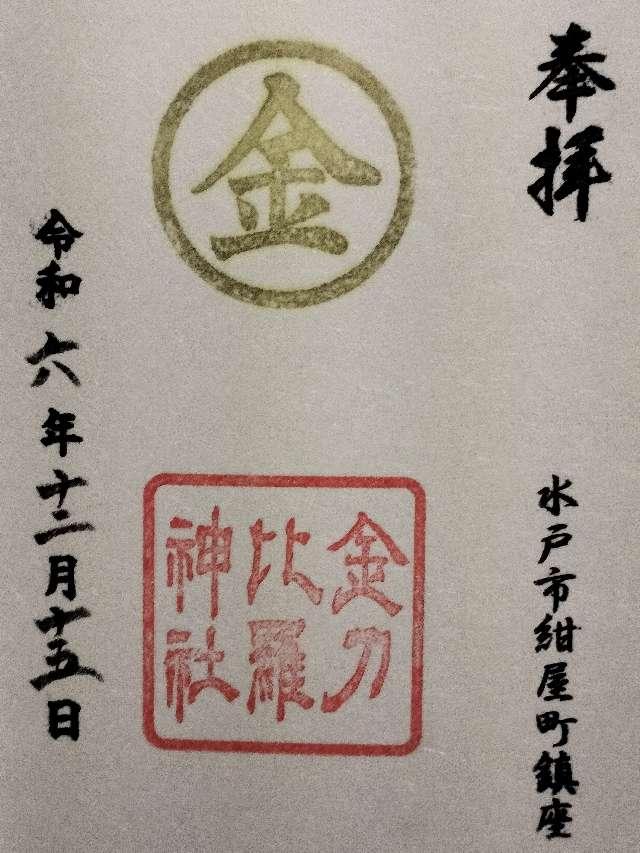 奉拝
水戸市紺屋町鎮座
金
金刀
比羅
神社
令和六年十二月十五日